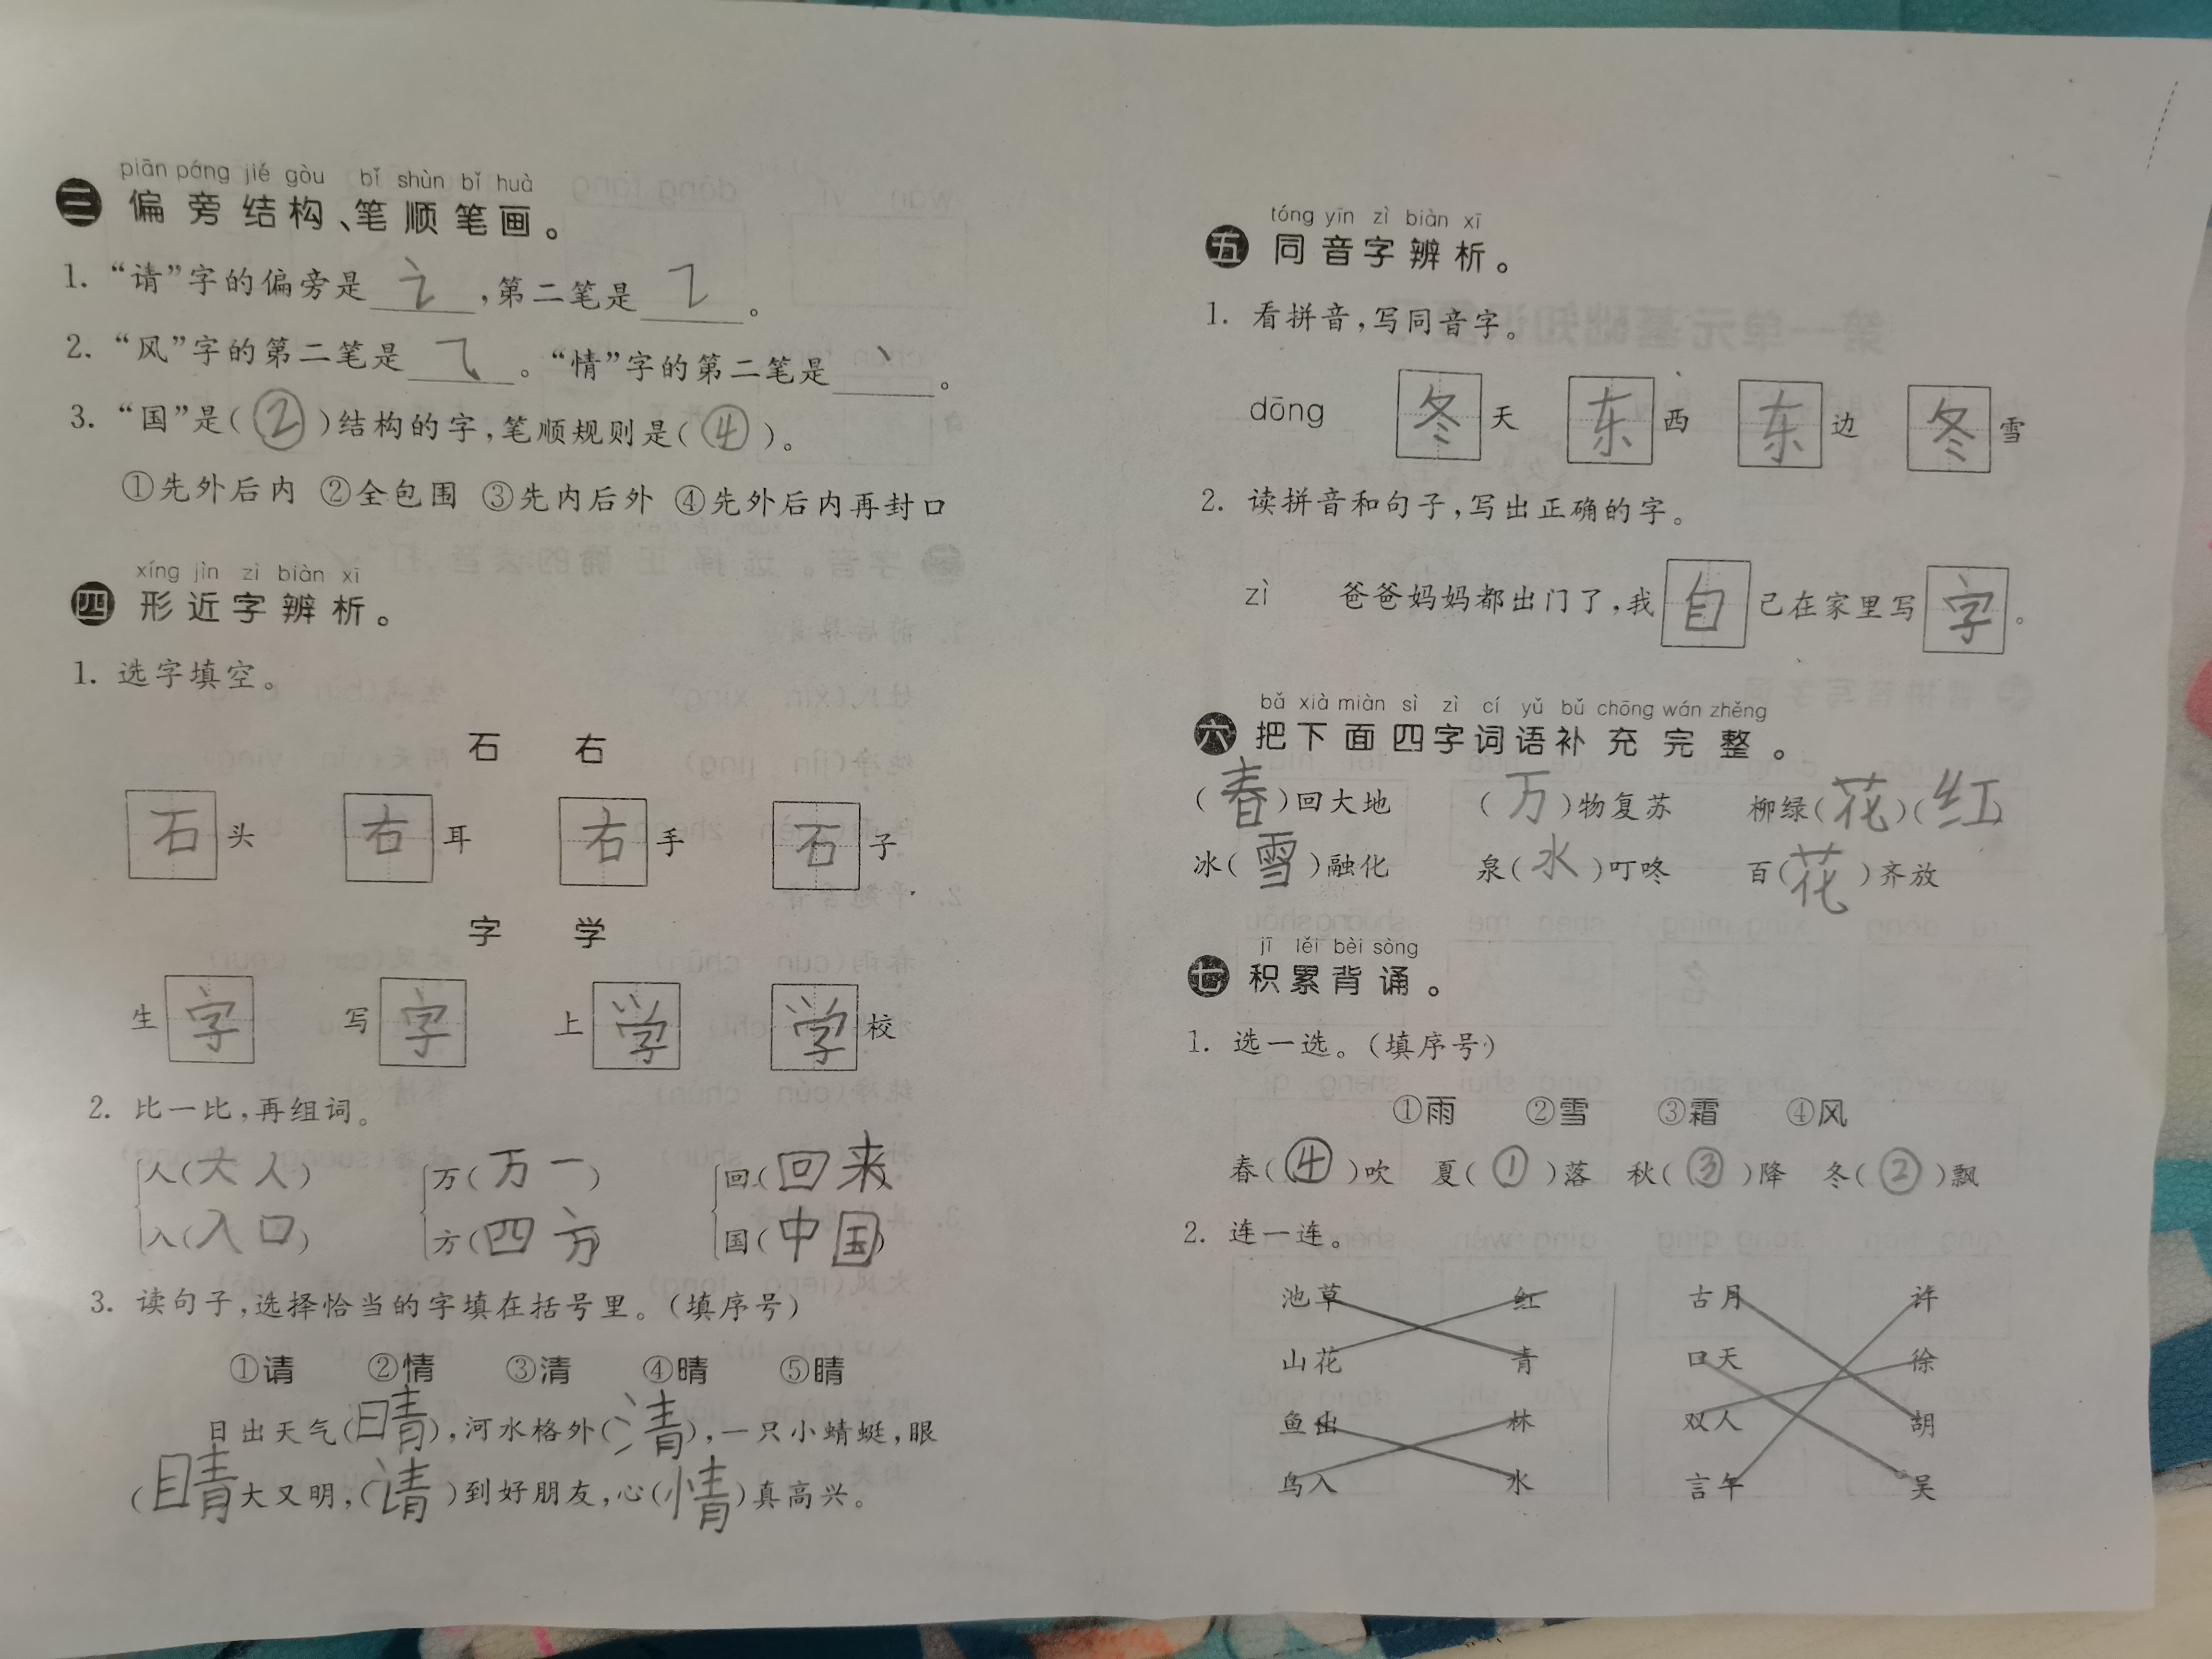 piān páng jié gòu bǐ shùn bǐ huà
三 偏旁结构、笔顺笔画。
1. “请”字的偏旁是 讠 ,第二笔是 ㇊ 。
2. “风”字的第二笔是 ⺄ 。“情”字的第二笔是 丶 。
3. “国”是(②)结构的字,笔顺规则是(④)。
①先外后内 ②全包围 ③先内后外 ④先外后内再封口
xíng jìn zì biàn xī
四 形近字辨析。
1. 选字填空。
石 右
石头 右耳 右手 石子
字 学
生字 写字 上学 学校
2. 比一比,再组词。
人(大人) 万(万一) 回(回来)
入(入口) 方(四方) 国(中国)
3. 读句子,选择恰当的字填在括号里。(填序号)
①请 ②情 ③清 ④晴 ⑤睛
日出天气(晴),河水格外(清),一只小蜻蜓,眼
(睛大又明,(请)到好朋友,心(情)真高兴。
tóng yīn zì biàn xī
五 同音字辨析。
1. 看拼音,写同音字。
dōng 冬天 东西 东边 冬雪
2. 读拼音和句子,写出正确的字。
zì 爸爸妈妈都出门了,我自己在家里写字。
bǎ xià miàn sì zì cí yǔ bǔ chōng wán zhěng
六 把下面四字词语补充完整。
(春)回大地 (万)物复苏 柳绿(花)(红)
冰(雪)融化 泉(水)叮咚 百(花)齐放
jī lěi bèi sòng
七 积累背诵。
1. 选一选。(填序号)
①雨 ②雪 ③霜 ④风
春(④)吹 夏(①)落 秋(③)降 冬(②)飘
2. 连一连。
池草 红 古月 许
山花 青 口天 徐
鱼出 林 双人 胡
鸟入 水 言午 吴